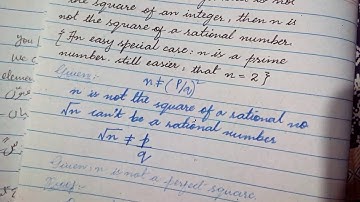 the square of an integer, then n is
not the square of a rational number.
{ An easy special case: n is a prime
number. still easier, that n = 2 }
Given:
n ≠ (p/q)²
n is not the square of a rational no
√n can't be a rational number
√n ≠ p/q
Given: n is not a perfect square.